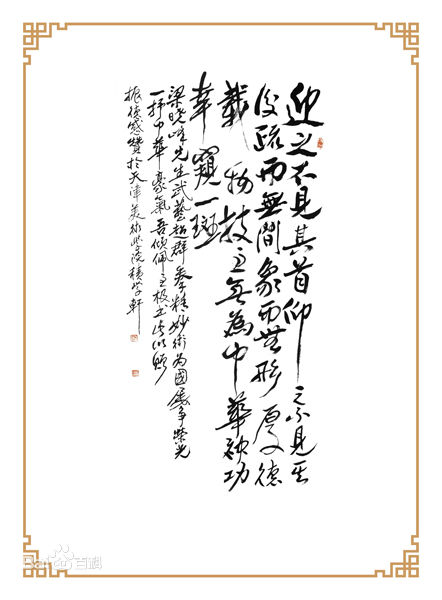 迎之不見其首仰之不見其
後疏而無間象而無形厚德
載物技之無為中華神功
幸窺一斑
梁晓峰先生武藝超群拳精妙術為國屢爭榮光
一抒中華豪氣吾傾佩之極書此以贈
振德感贊於天津美術學院積學軒
Bai百科